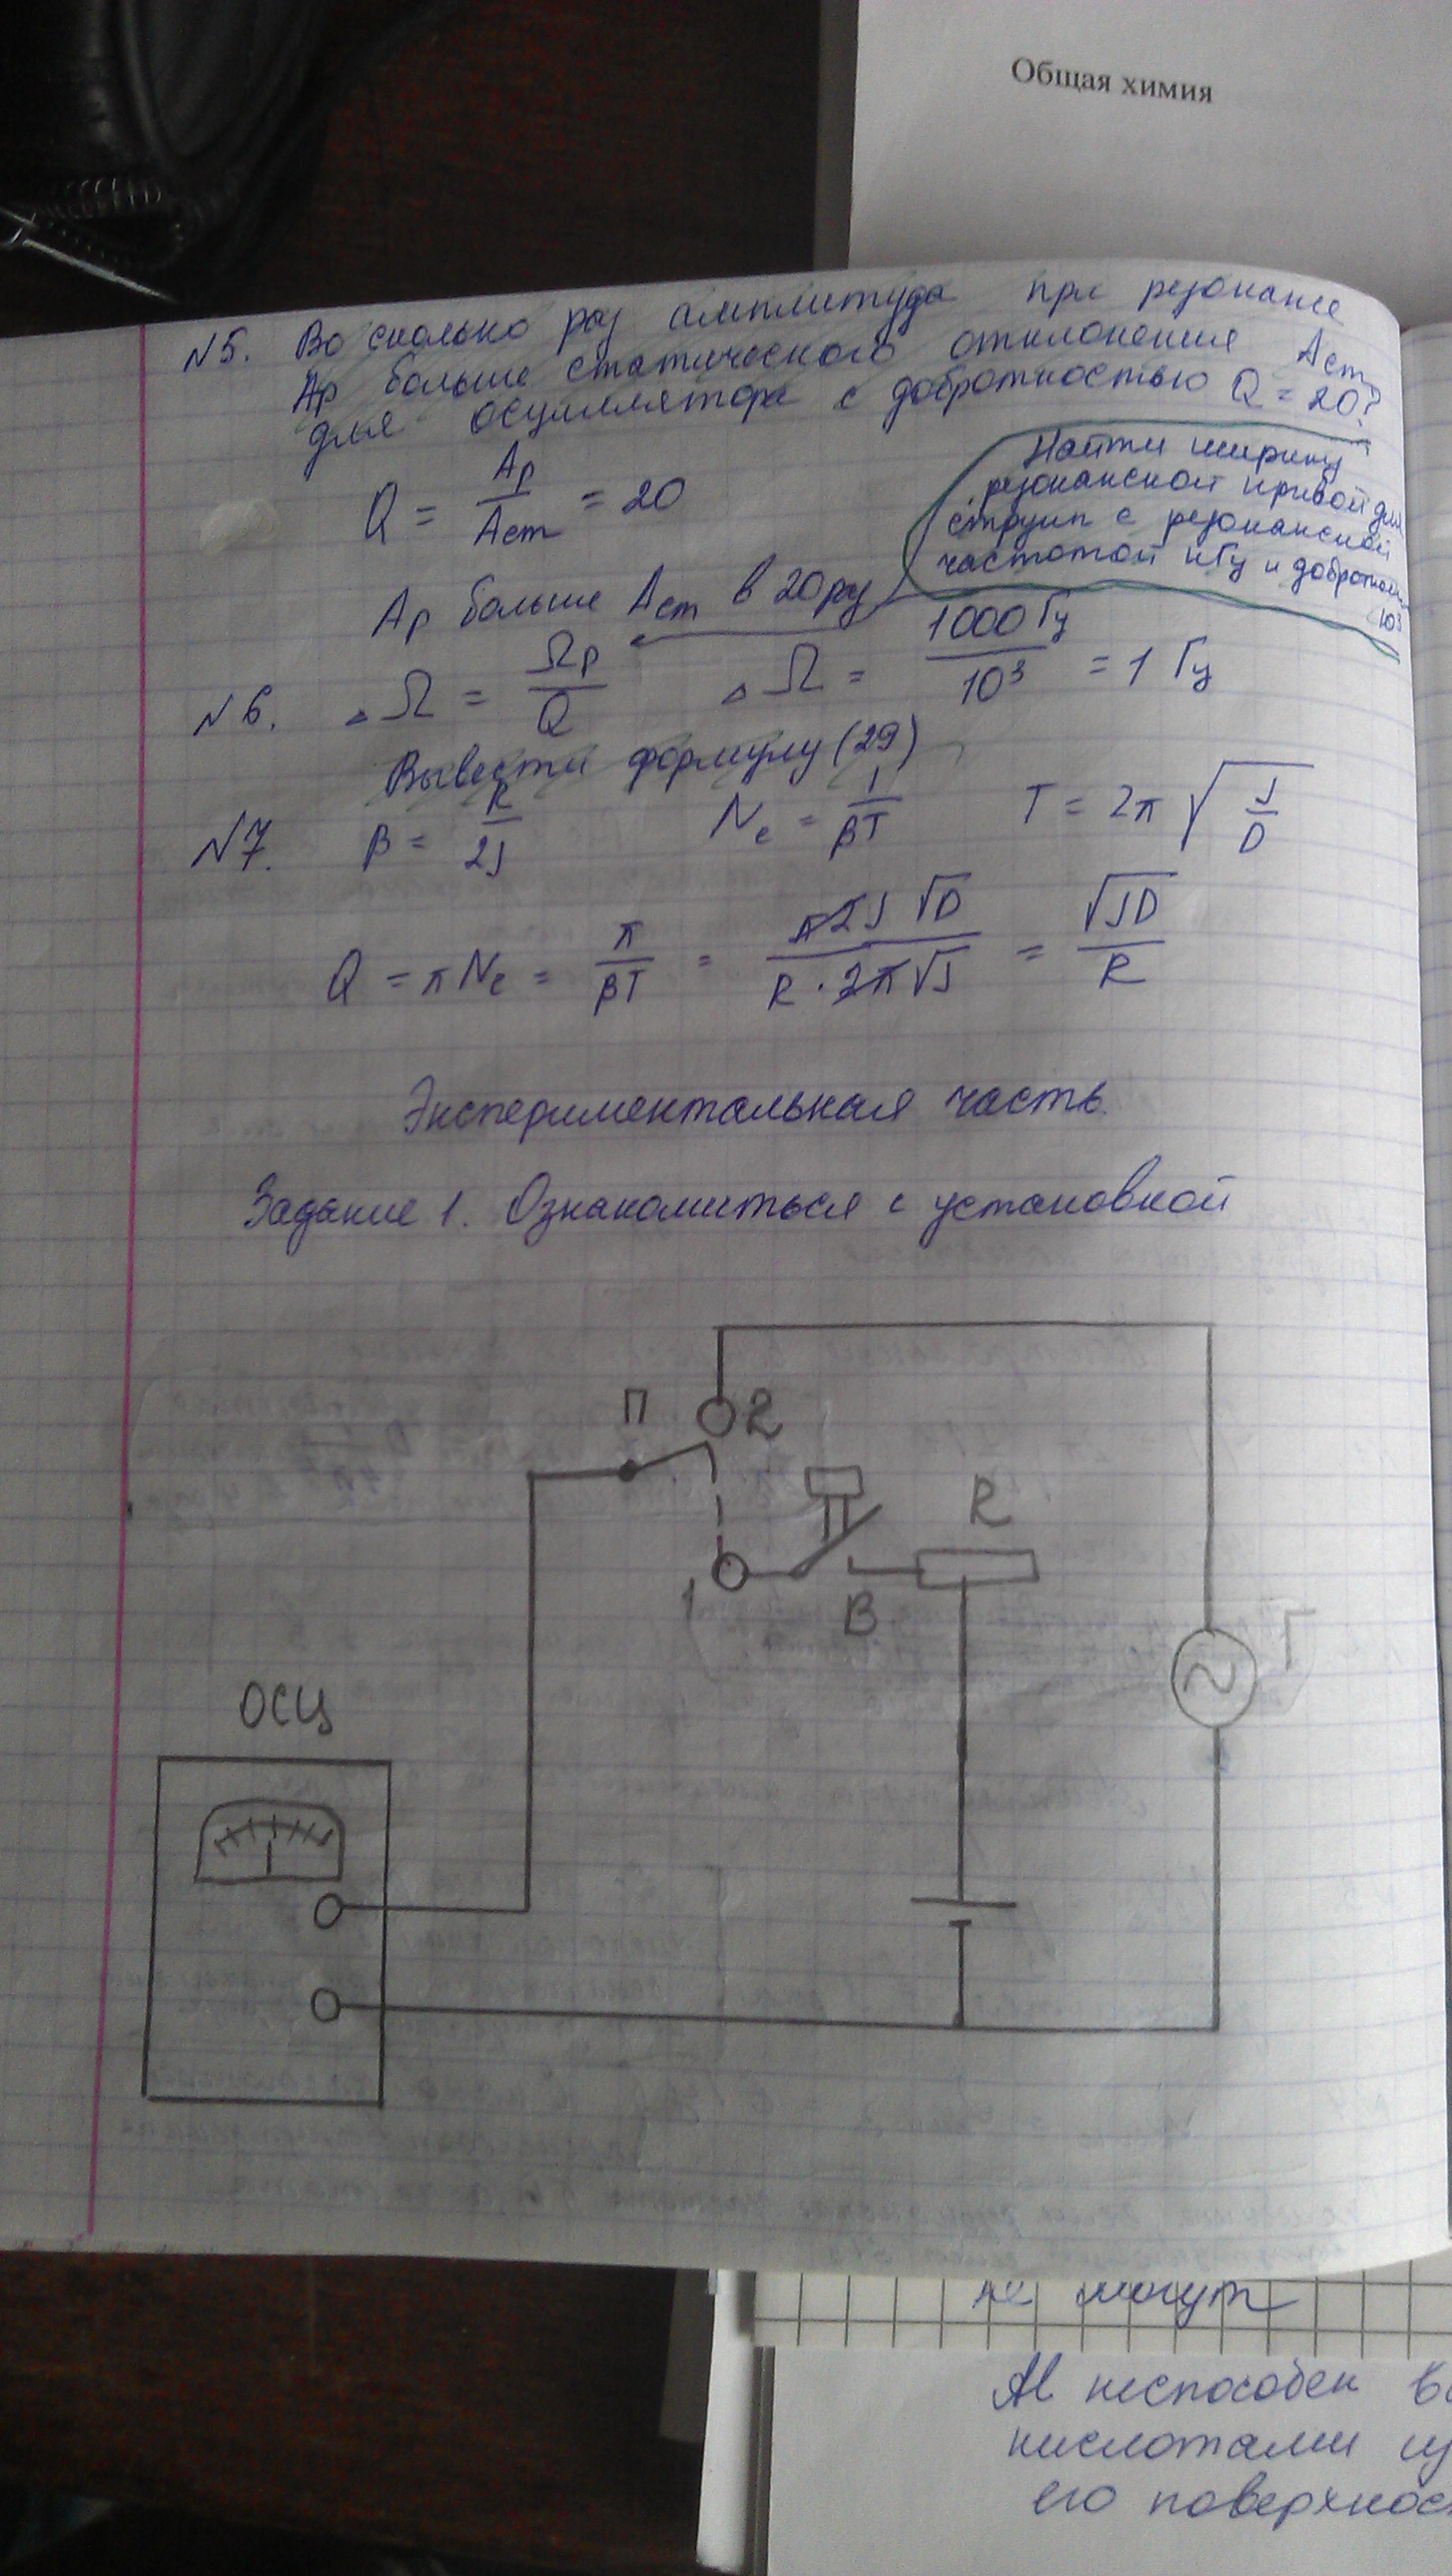 Общая химия
№5. Во сколько раз амплитуда при резонансе
Ар больше статического отклонения Аст
для осциллятора с добротностью Q = 20?
Q = Ар / Аст = 20
Найти ширину
резонансной кривой для
струны с резонансной
частотой кГц и добротностью
10³
Ар больше Аст в 20 раз
№6. ΔΩ = Ωр / Q ΔΩ = 1000 Гц / 10³ = 1 Гц
Вывести формулу (29)
№7. β = R / 2J Ne = 1 / βT T = 2π √(J / D)
Q = πNe = π / βT = π2J √D / R · 2π√J = √JD / R
Экспериментальная часть.
Задание 1. Ознакомиться с установкой
П
2
R
1
В
Г
ОСЦ
не минут
Al неспособен
кислотами
его поверхнос